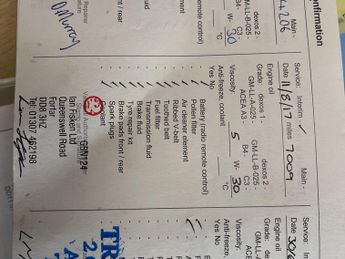 onfirmation
Main -
44206
dexos 2 -
GM-LL-B-025 -
B4- C3
W- 30
°C
remote control)
D. Murray
Repairer
ant / rear
Service: Interim - ✓ Main -
Date 11/8/17 miles 7009
Engine oil
Grade: dexos 1 - dexos 2 -
GM-LL-A-025 - GM-LL-B-025 -
ACEA A3 - B4- C3
Viscosity 5 W- 30
Anti-freeze, coolant °C
Yes No
Battery (radio remote control)
Pollen filter
Air cleaner element
Ribbed V-belt
Toothed belt
Fuel filter
Transmission fluid
Brake fluid
Tyre repair kit
Brake pads front / rear
Spark plugs
GBN124
Ian Fisken Ltd
Queenswell Road
Forfar
DD8 3HZ
Tel: 01307 462198
Service: In
Date 30/
Engine oil
Grade: de
GM-LL-
ACEA
Viscosity
Anti-freeze,
Yes No